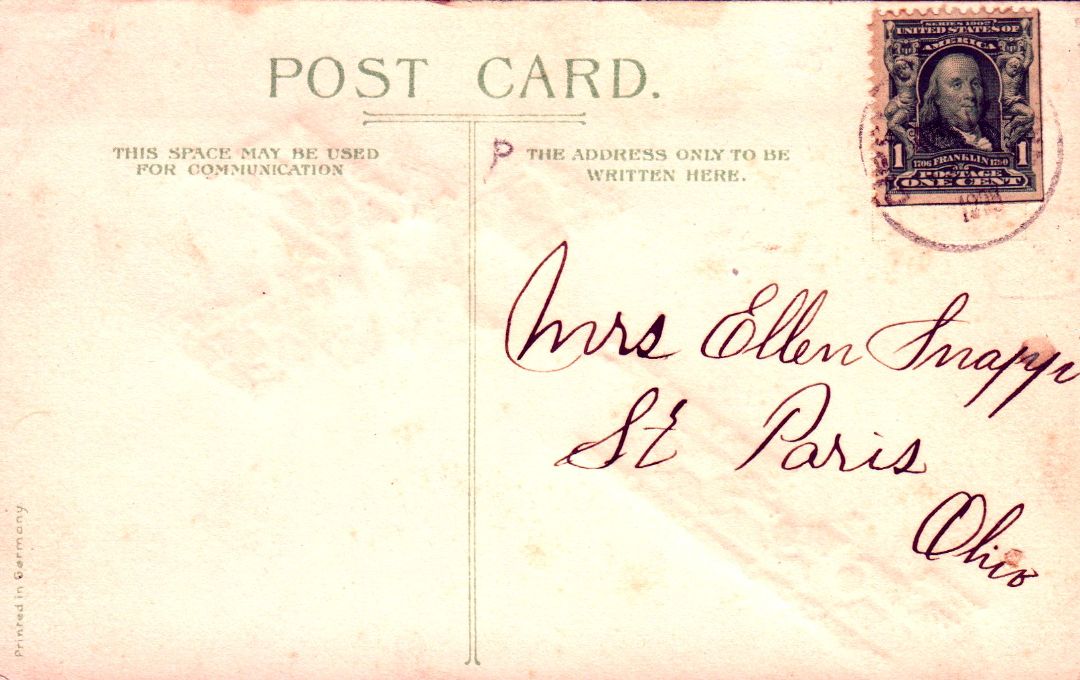 POST CARD.
THIS SPACE MAY BE USED
FOR COMMUNICATION
P THE ADDRESS ONLY TO BE
WRITTEN HERE.
SERIES 1902
UNITED STATES OF
AMERICA
1 1706 FRANKLIN 1790 1
POSTAGE
ONE CENT
Mrs Ellen Snapp
St Paris
Ohio
Printed in Germany